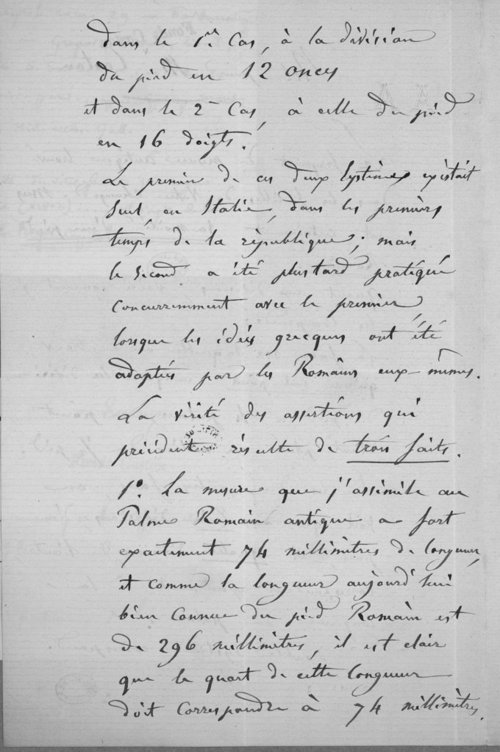 dans le 1er Cas, à la division
du pied en 12 onces
et dans le 2e Cas, à celle du pied
en 16 doigts.
Le premier de ces deux systèmes existait
seul, en Italie, dans les premiers
temps de la république; mais
le second a été plustard pratiqué
concurremment avec le premier,
lorsque les idées grecques ont été
adoptées par les Romains eux-mêmes.
La vérité des assertions qui
précèdent résulte de trois faits.
1o. La mesure que j'assimile au
Palme Romain antique a fort
exactement 74 millimètres de longueur,
et comme la longueur aujourd'hui
bien connue du pied Romain est
de 296 millimètres, il est clair
que le quart de cette longueur
doit correspondre à 74 millimètres.